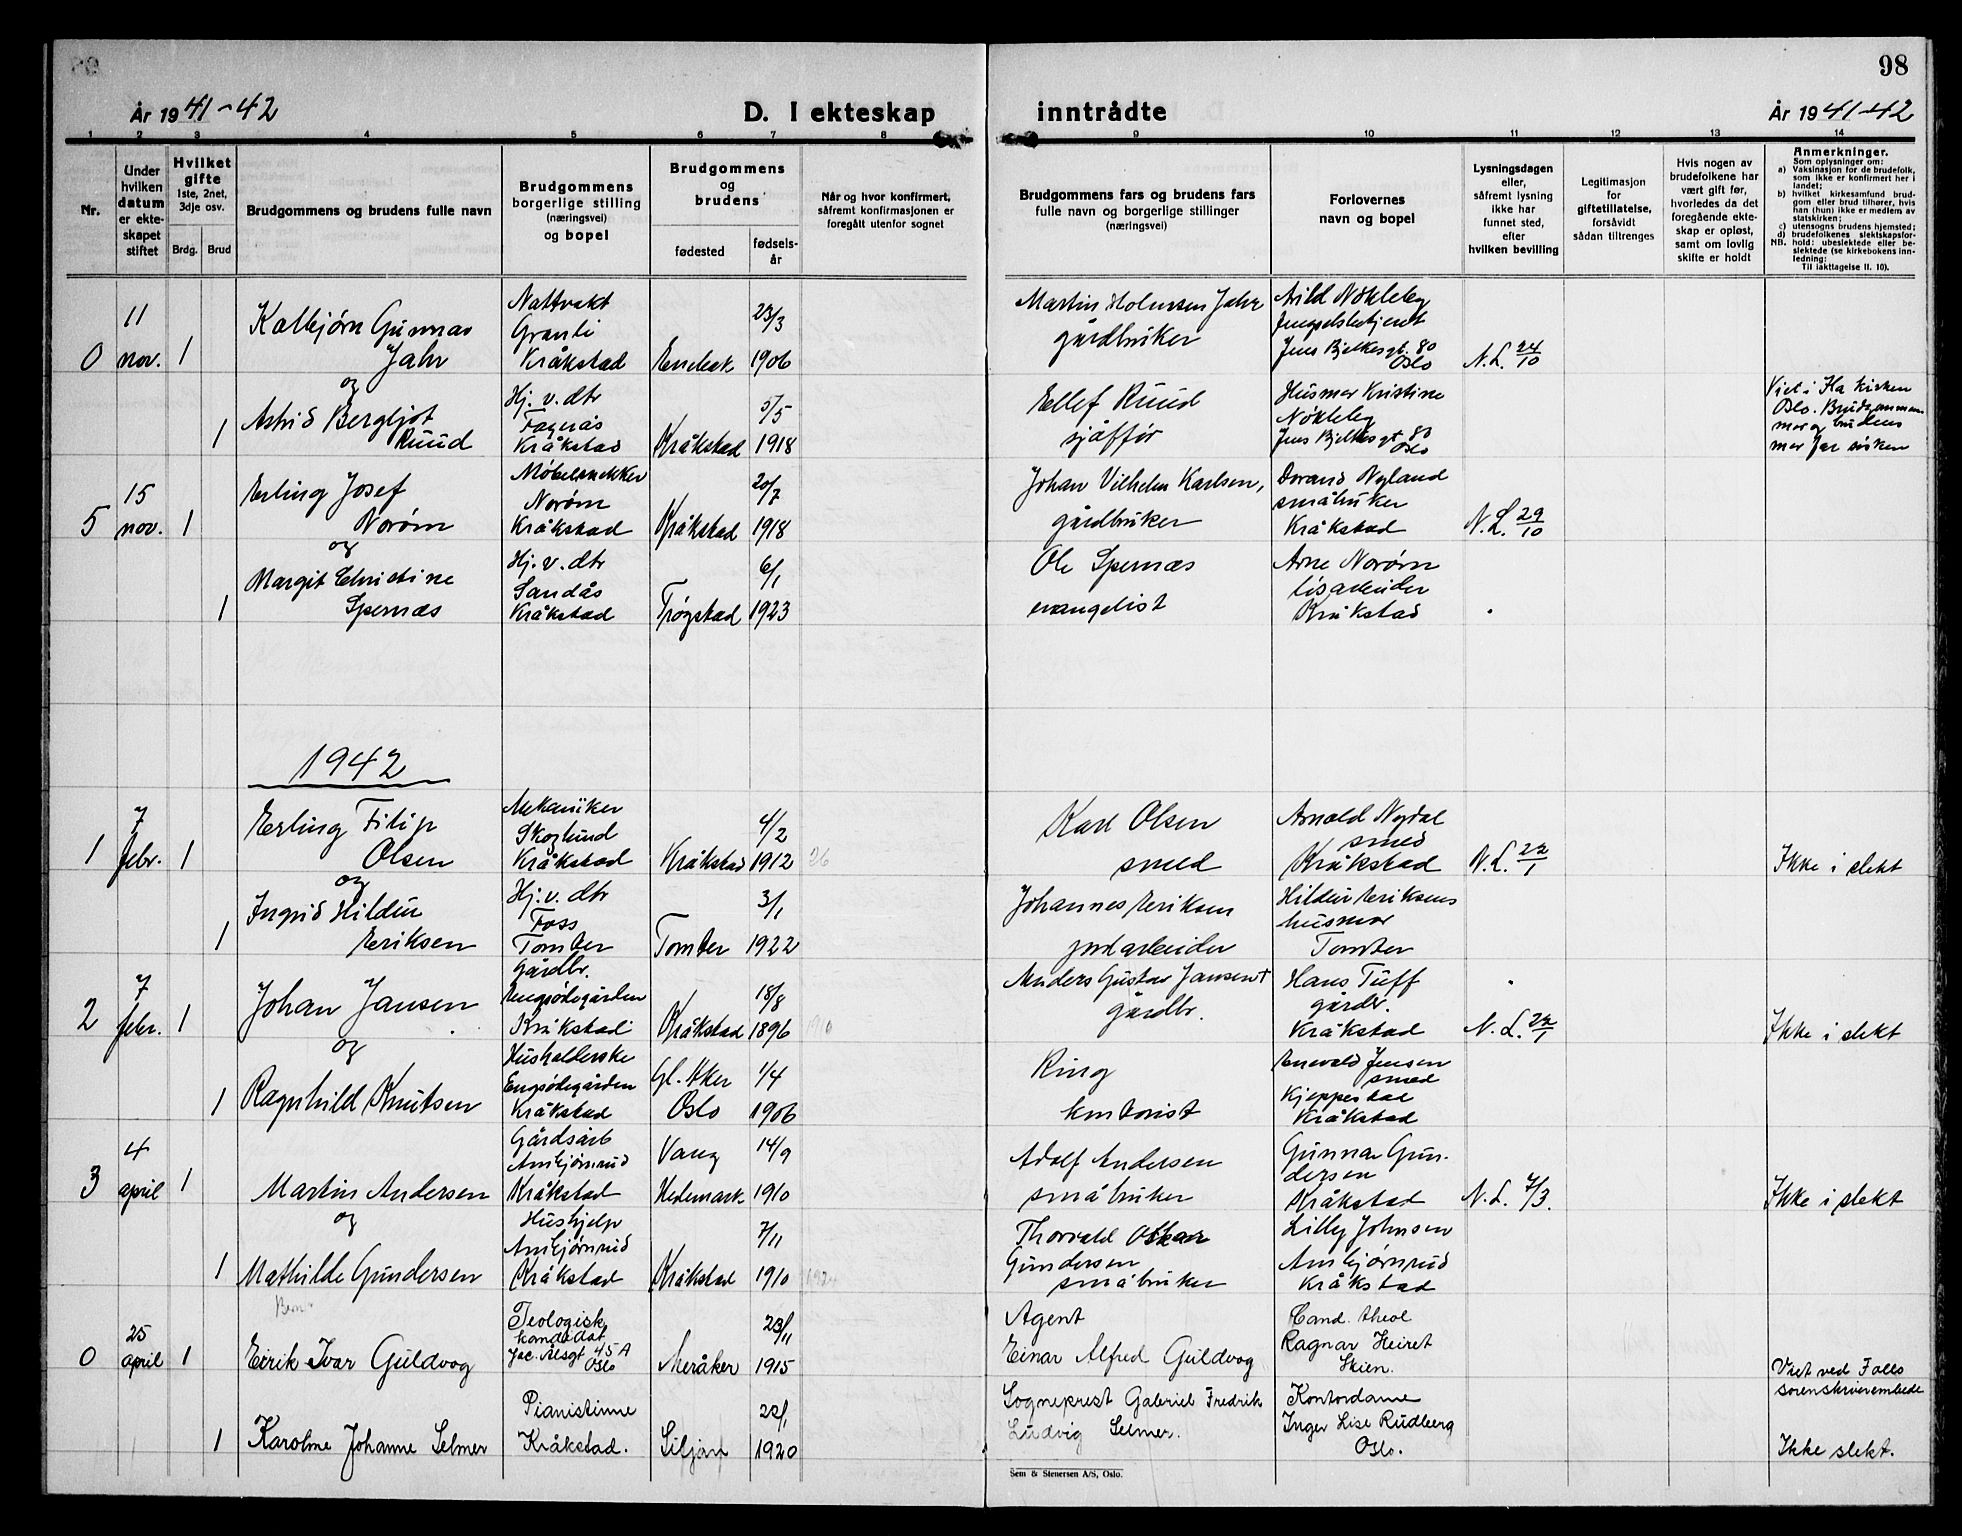 98
År 1941-42
D. I ekteskap
inntrådte
År 1941-42
1 2 3 4 5 6 7 8 9 10 11 12 13 14
Nr.
Under hvilken datum er ekteskapet stiftet
Hvilket gifte
1ste, 2net, 3dje osv.
Brdg. Brud
Brudgommens og brudens fulle navn
Brudgommens borgerlige stilling (næringsvei) og bopel
Brudgommens og brudens
fødested
fødselsår
Når og hvor konfirmert, såfremt konfirmasjonen er foregått utenfor sognet
Brudgommens fars og brudens fars fulle navn og borgerlige stillinger (næringsvei)
Forlovernes navn og bopel
Lysningsdagen eller, såfremt lysning ikke har funnet sted, efter hvilken bevilling
Legitimasjon for giftetillatelse, forsåvidt sådan tiltrenges
Hvis nogen av brudefolkene har vært gift før, hvorledes da det foregående ekteskap er opløst, samt om lovlig skifte er holdt
Anmerkninger.
Som oplysninger om:
a) Vaksinasjon for de brudefolk, som ikke er konfirmert her i landet;
b) hvilket kirkesamfund brudgom eller brud tilhører, hvis han (hun) ikke er medlem av statskirken;
c) utensogns brudens hjemsted;
d) brudefolkenes slektskapsforhold: ubeslektede eller beslektede (se kirkebokens innledning:
NB. Til iakttagelse II. 10).
0 11 nov. 1
Kolbjørn Gunnar Jahr
Nattvakt Granli Kråkstad
Enebak 23/3 1906
gårdbruker
Arild Nøkleby
Jens Bjelkesgt. 80 Oslo
N.L. 24/10
og
1 Astrid Bergljot Ruud
Hj. v. dtr Fagerås Kråkstad
Kråkstad 5/5 1918
Ellef Ruud sjåfför
Husmor Kristine Nøkleby
Jens Bjelkesgt 80 Oslo
Viet i Ka kirken Oslo. Brudgommens mor og brudens mor
søsken
5 15 nov. 1
Erling Josef Norøm
Møbelsnekker Norøm Kråkstad
Kråkstad 20/7 1918
Johan Vilhelm Karlsen, gårdbruker
Nyland småbruker Kråkstad
N.L. 29/10
og
1 Margit Christine Spernæs
Hj. v. dtr Sandås Kråkstad
Trøgstad 6/1 1923
Ole Spernæs evangelist
Arne Norøm
Kråkstad
1942
1 7 febr. 1
Erling Filip Olsen
Mekaniker Skoglund Kråkstad
Kråkstad 4/2 1912 26
Karl Olsen smed
Arnold Nydal smed Kråkstad
N.L. 22/1
Ikke i slekt
og
1 Ingrid Hildur Eriksen
Hj. v. dtr Foss Tomter
Tomter 3/1 1922
Johannes Eriksen jordarbeider
Hildur Eriksens husmor Tomter
2 7 febr. 1
Johan Jansen
Gårdbr. Engsødegården Kråkstad
Kråkstad 18/8 1896 1910
Anders Gustav Jansen † gårdbr.
Hans Tuff gårdbr. Kråkstad
N.L. 22/1
Ikke i slekt
og
1 Ragnhild Knutsen
Husholderske Engsødegården Kråkstad
Gl. Aker Oslo 1/4 1906
Ring kontorist
Enevald Jensen smed Kjeppestad Kråkstad
3 4 april 1
Martin Andersen
Gårdsarb Ambjørnrud Kråkstad
Vang Hedemark 14/9 1910
Adolf Andersen småbruker
Gunnar Gundersen Kråkstad
N.L. 7/3.
Ikke i slekt
og
1 Mathilde Gundersen
Hushjelp Ambjørnrud Kråkstad
Kråkstad 7/11 1910 1924
Thorvald Oskar Gundersen småbruker
Lilly Johnsen Ambjørnrud Kråkstad
0 25 april 1
Eirik Ivar Guldvog
Teologisk kandidat Jac. Alsgt 45A Oslo
Meråker 23/11 1915
Agent Einar Alfred Guldvog
Cand. theol Ragnar Heiret Skien.
Viet ved Follo sorenskriverembede
1 Karoline Johanne Selmer
Pianistinne Kråkstad.
Siljan 22/1 1920
Sogneprest Gabriel Fredrik Ludvig Selmer.
Kontordame Inger Lise Rudberg Oslo.
Ikke slekt.
Sem & Stenersen A/S, Oslo.